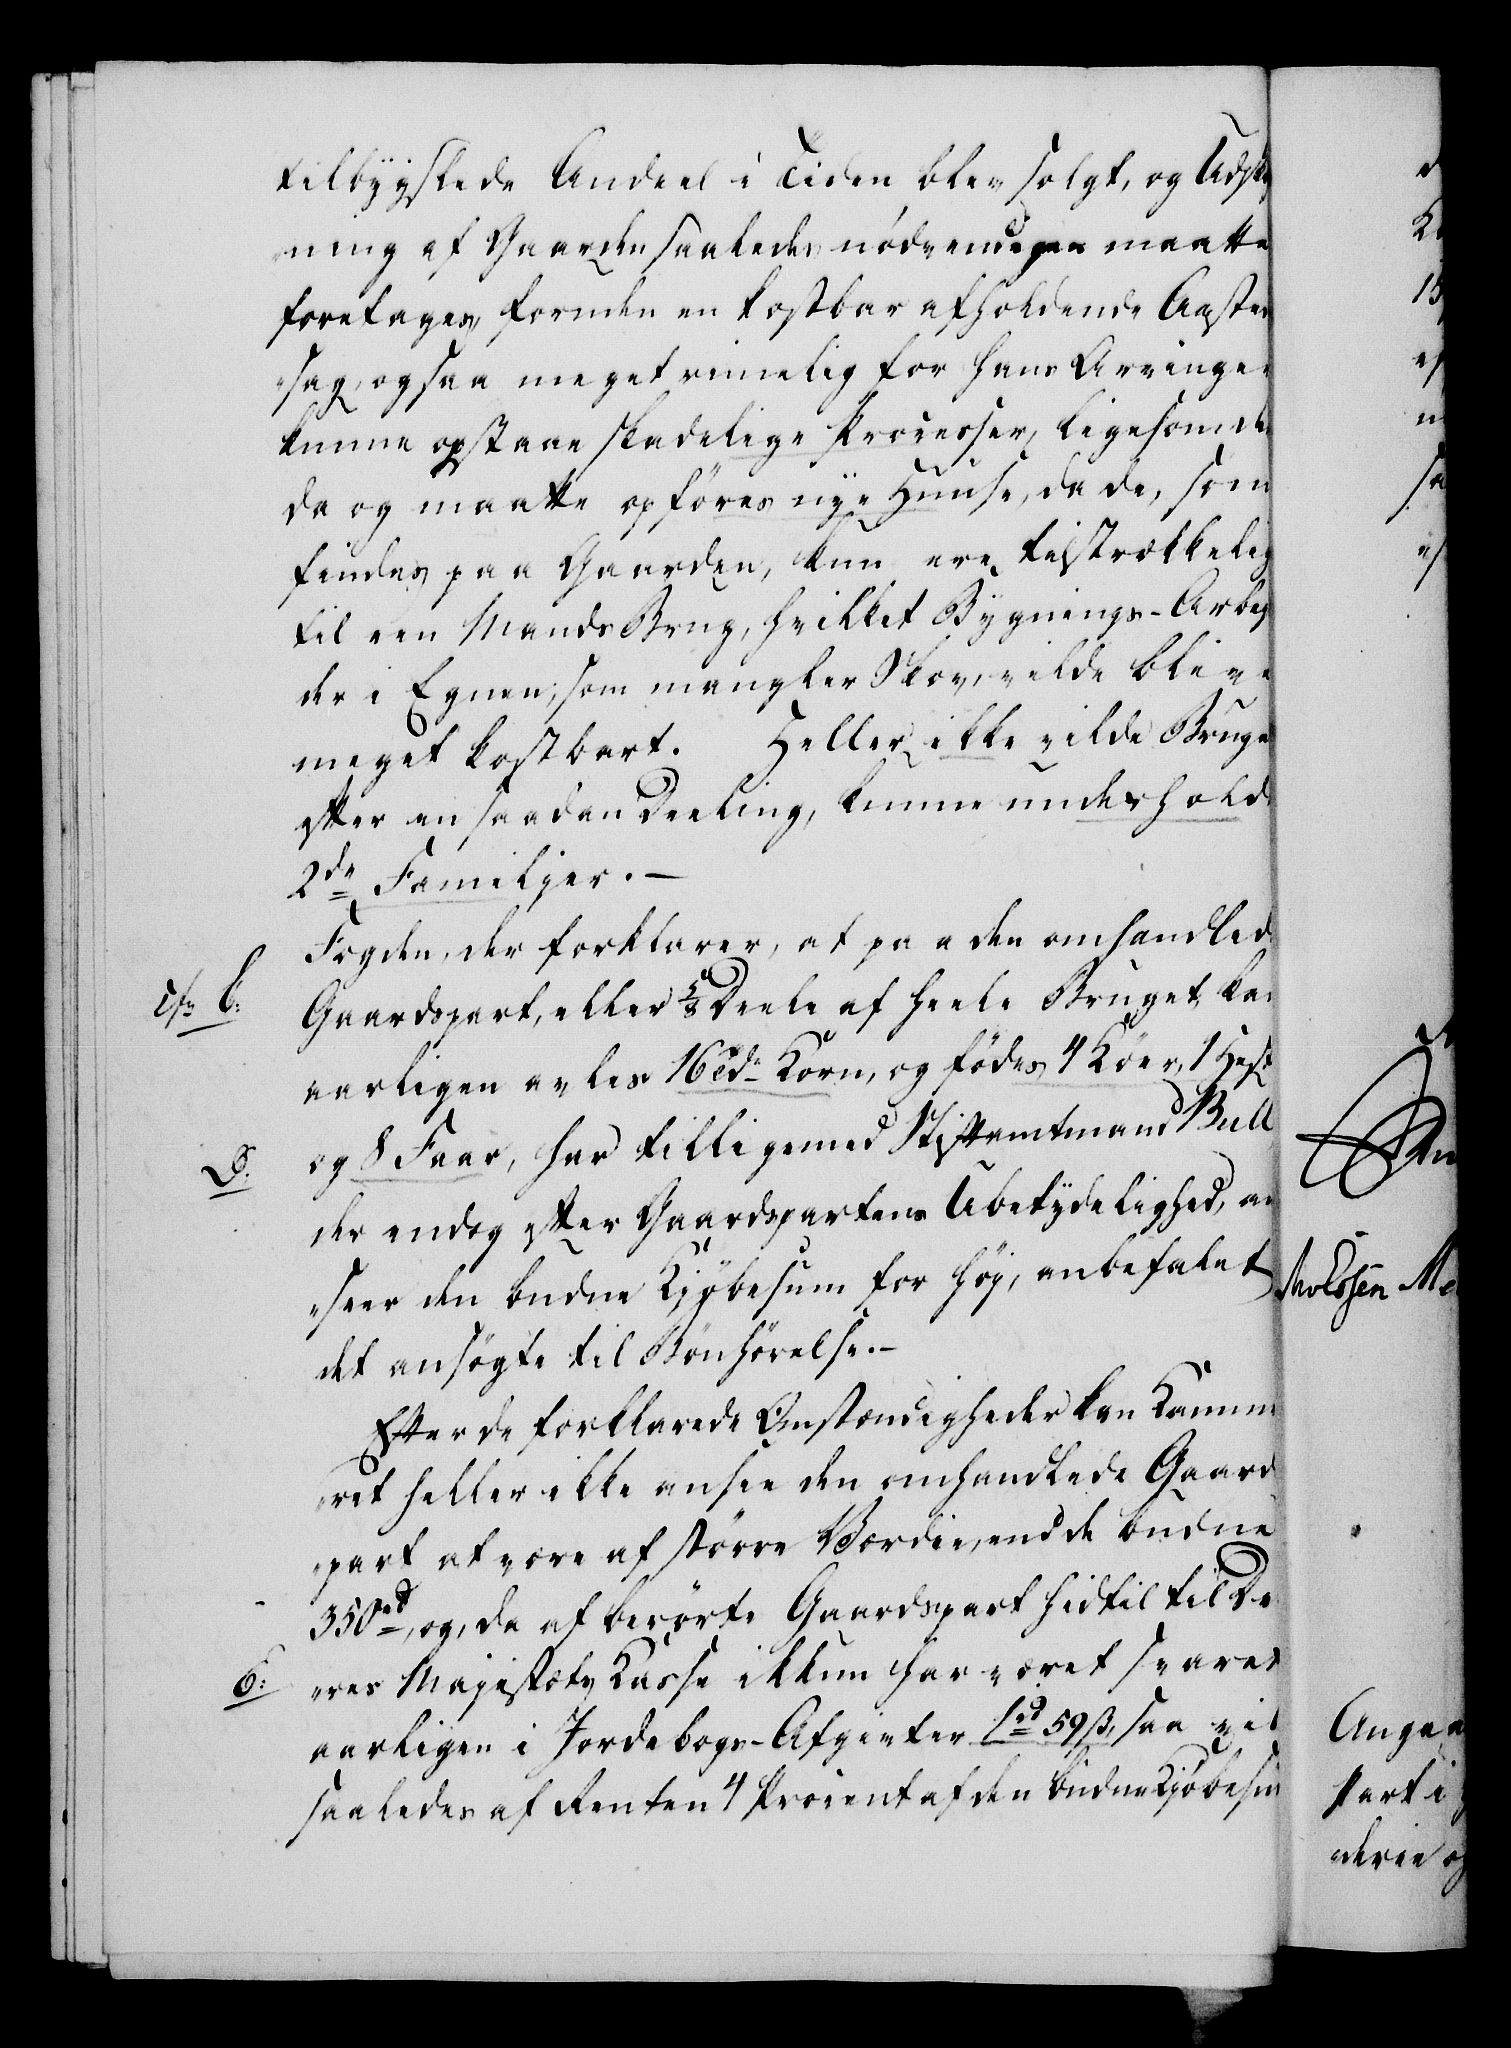 tilbygslede Andeel i Tiden blev solgt, og Udskif
ning af Gaarden saaledes nødvendigen maatte
foretages, foruden en kostbar afholdende Aasteds
sag, ogsaa meget rimelig for hans Arvinger
kunne opstaae skadelige Processer, ligesom der
da og maatte opføres nye Huuse, da de, som
findes paa Gaarden, kun ere tilstrækkelig
til een Mands Brug, hvilket Bygnings-Arbej
der i Egnen, som mangler Skov, vilde blive
meget kostbart. Heller ikke vilde Bruget
efter en saadan Deeling, kunne underholde
2de Familjer. —
Fogden, der forklarer, at paa den omhandlede
cfr b:
Gaardspart, eller 5/8 Deele af heele Bruget, kan
aarligen avles 16 Tdr Korn, og fødes 4 Køer, 1 Hest
D.
og 8 Faar, har tilligemed Stiftamtmand Bull
der endog efter Gaardspartens Ubetydelighed, an
seer den budne Kjøbesum for høj, anbefalet
det ansøgte til Bønhørelse. —
Efter de forklarede Omstændigheder kan Kamme
ret heller ikke ansee den omhandlede Gaard
part at være af større Værdie, end de budne
350 rd, og, da af berørte Gaardspart hidtil til De
6:
res Majestæts Kasse ikkun har været svaret
aarligen i Jordebogs-Afgivter 1 rd 59 ß, saa vil
saaledes af Renten 4 Procent af den budne Kjøbesum
Molssen
Angaa
Part i
derie og